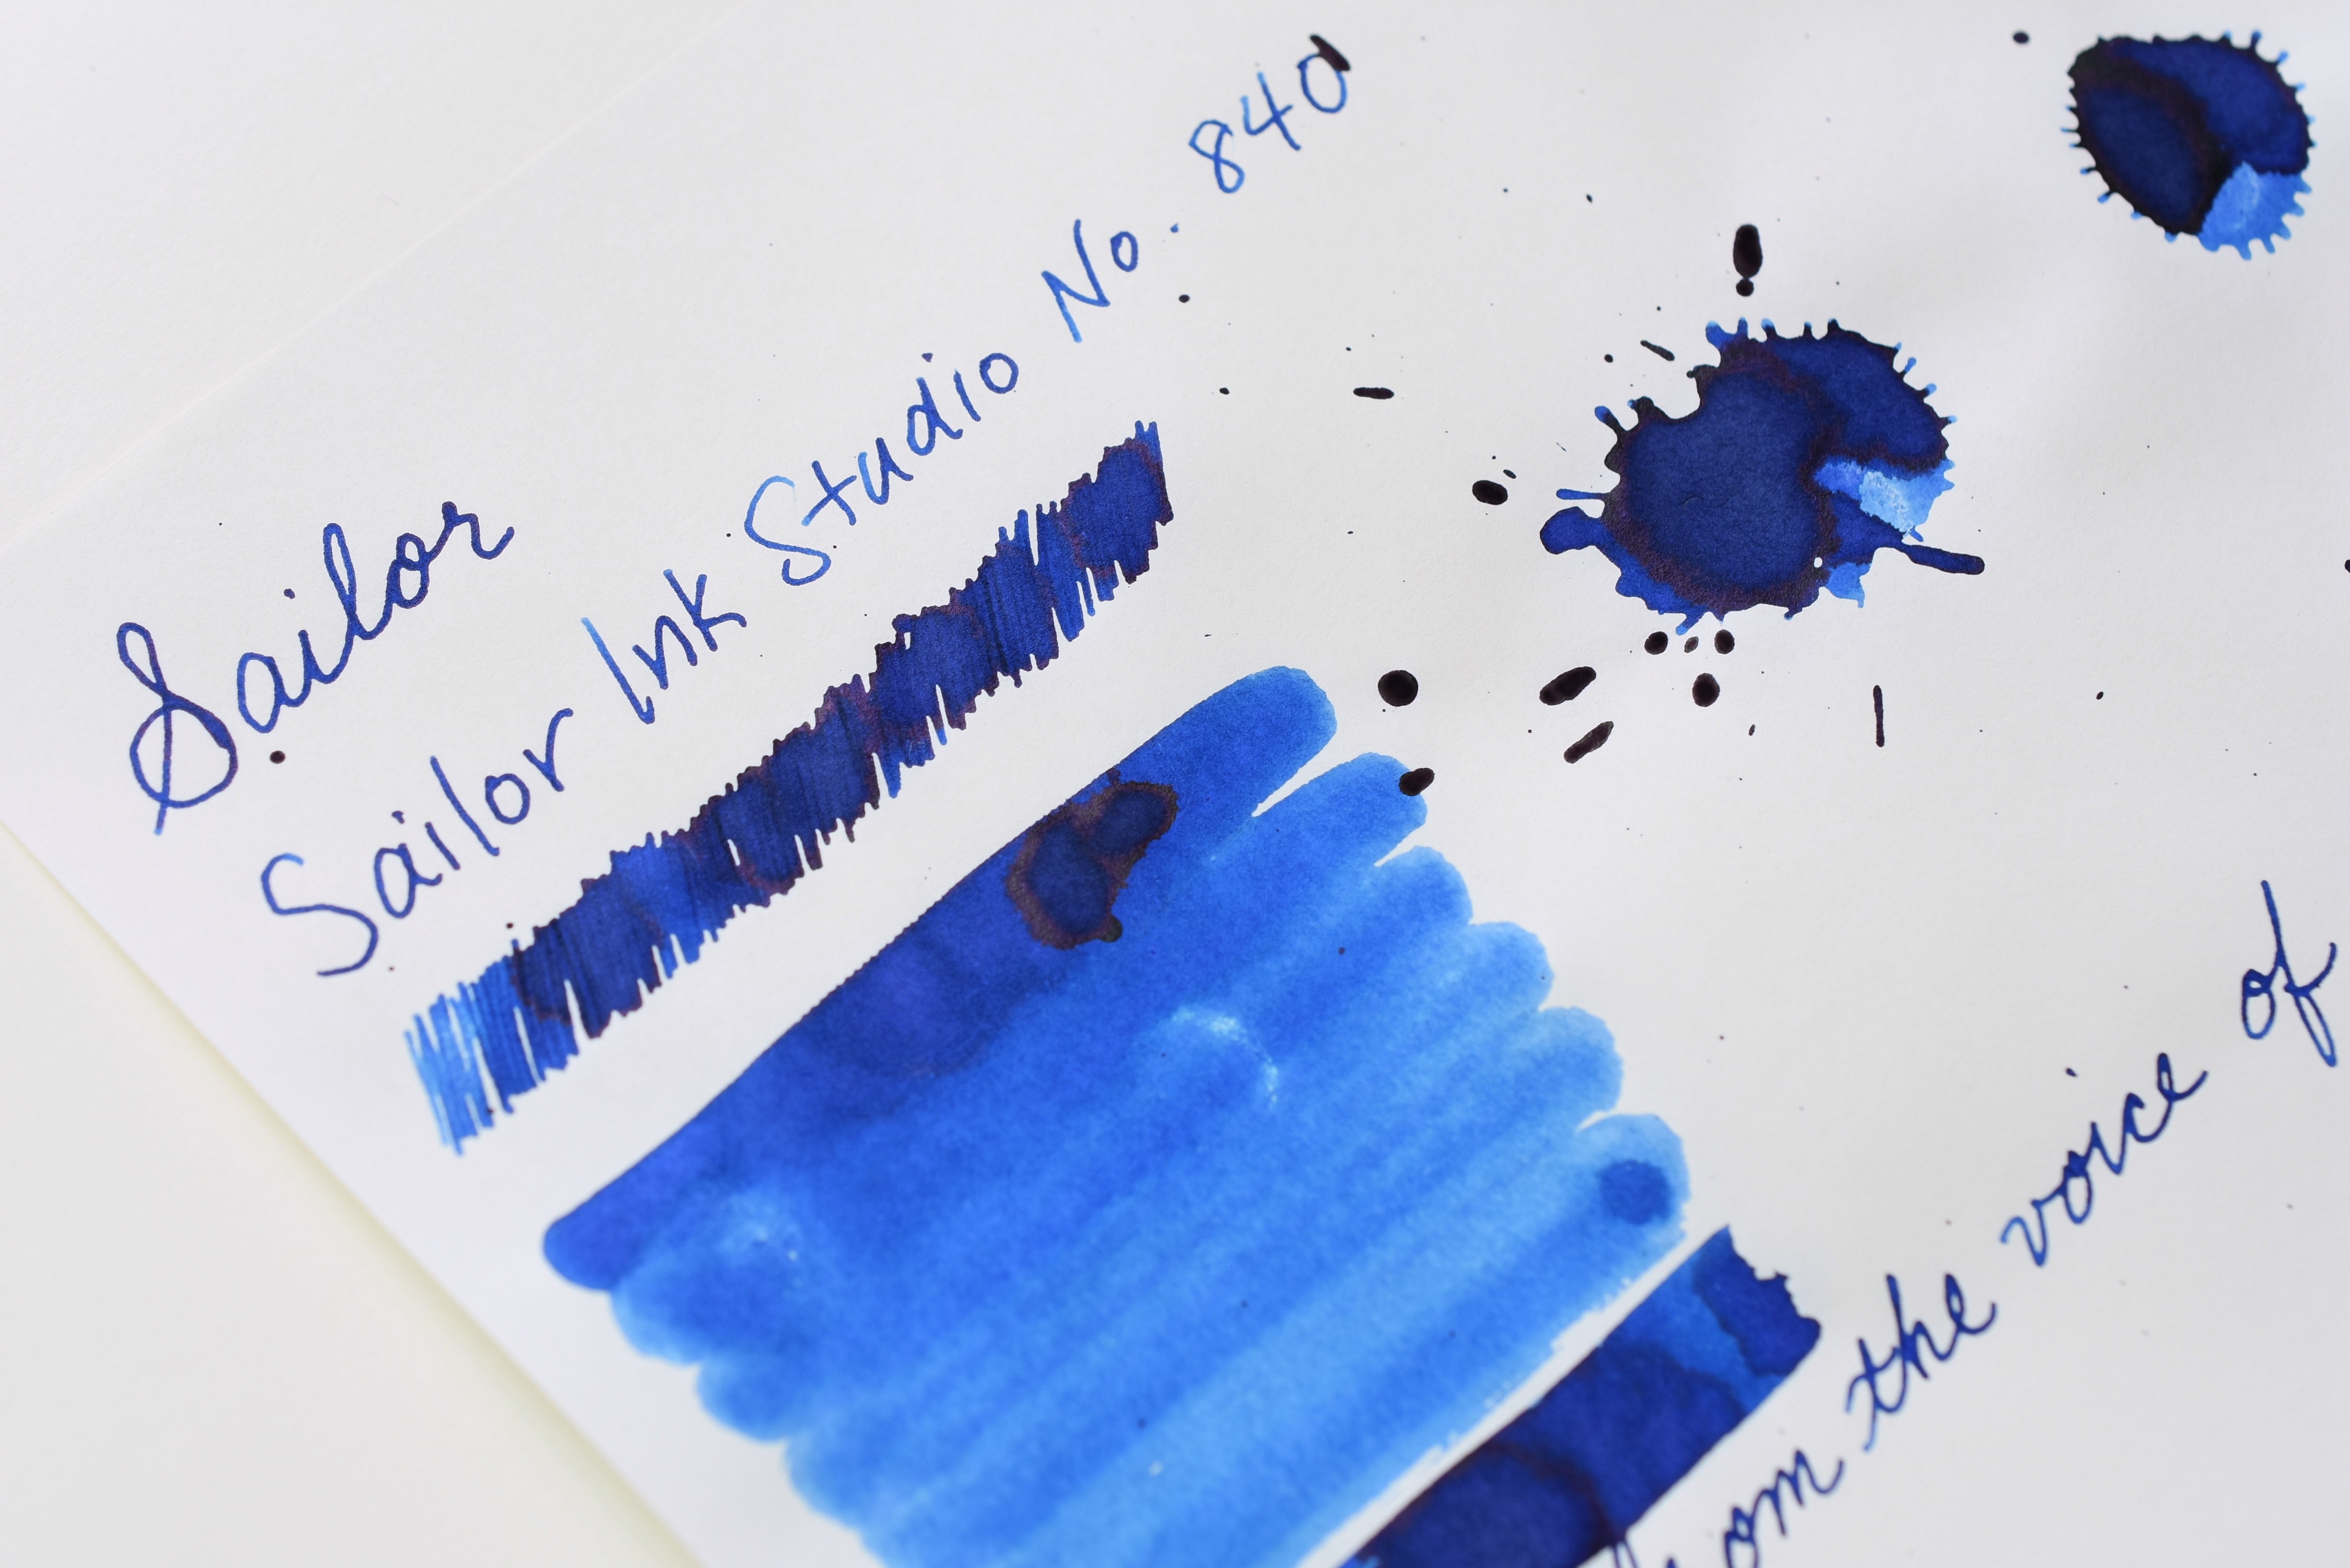 Sailor
Sailor Ink Studio No. 840
from the voice of